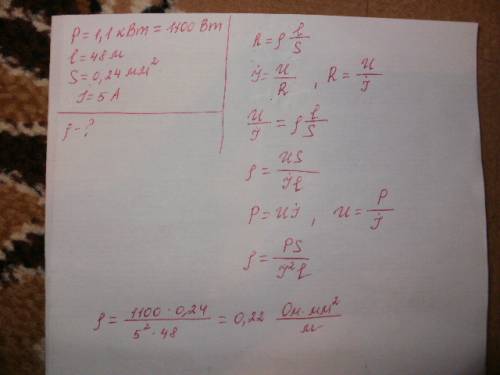 P = 1,1 кВт = 1100 Вт
l = 48 м
S = 0,24 мм²
I = 5 А
ρ - ?
R = ρ l/S
I = U/R , R = U/I
U/I = ρ l/S
ρ = US/Il
P = UI , U = P/I
ρ = PS/I²l
ρ = 1100 · 0,24/5² · 48 = 0,22 Ом · мм²/м